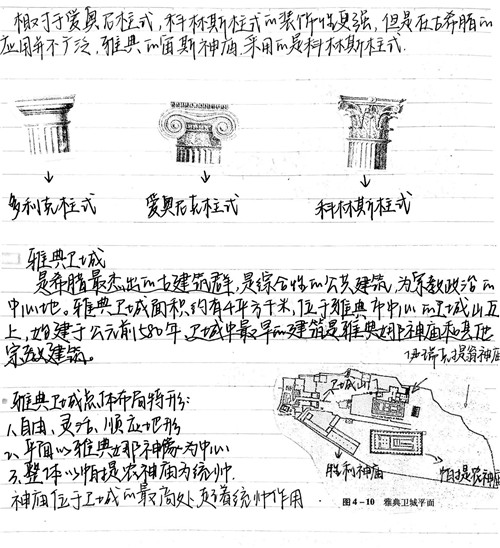 相对于爱奥尼柱式，科林斯柱式的装饰性更强，但是在古希腊的
应用并不广泛，雅典的宙斯神庙采用的是科林斯柱式．
多利克柱式
爱奥尼克柱式
科林斯柱式
雅典卫城
是希腊最杰出的古建筑群，是综合性的公共建筑，为宗教政治的
中心地。雅典卫城面积约有4平方千米，位于雅典市中心的卫城山丘
上，始建于公元前580年。卫城中最早的建筑是雅典娜神庙和其他
宗教建筑。
伊瑞克提翁神庙
卫城山门
雅典卫城总体布局特形：
1、自由、灵活、顺应地形
2、平面以雅典娜神像为中心
3、整体以帕提农神庙为统帅．
神庙位于卫城的最高处，起着统帅作用
胜利神庙
帕提农神庙
图4-10 雅典卫城平面